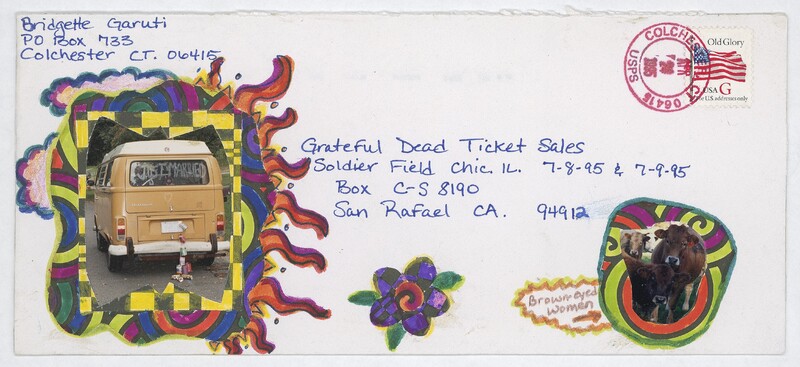 Bridgette Garuti
PO Box 733
Colchester CT. 06415
COLCHESTER CT
APR
1995
USPS
06415
Old Glory
USA G
For U.S. addresses only
Grateful Dead Ticket Sales
Soldier Field Chic IL. 7-8-95 & 7-9-95
Box C-S 8190
San Rafael CA. 94912
JUST MARRIED
Brown eyed
Women